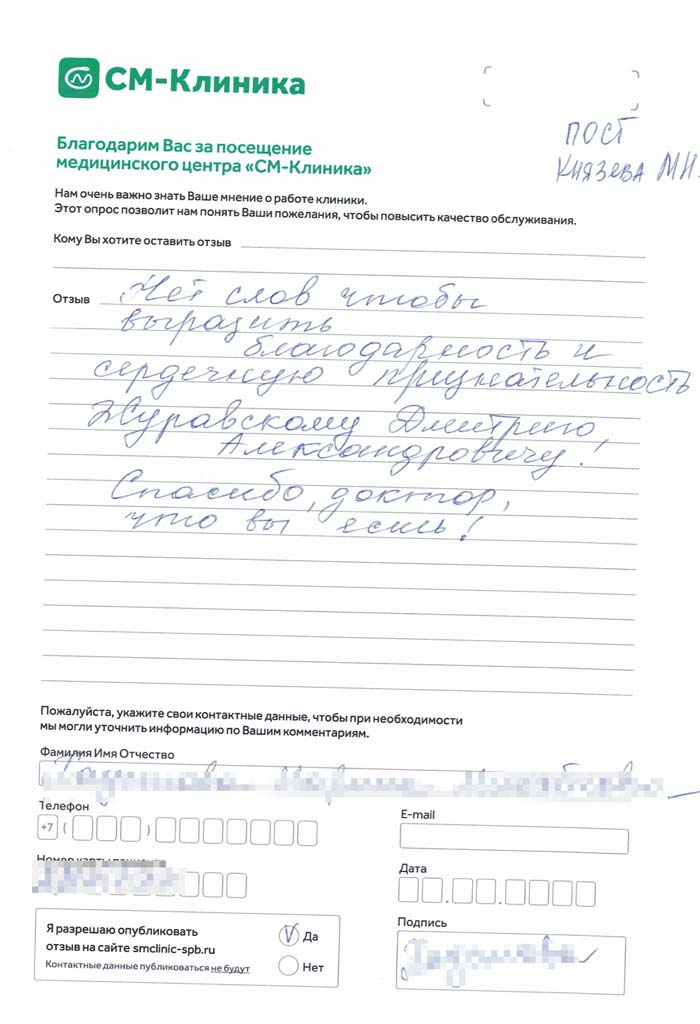 СМ-Клиника
пост
Князева М.Н.
Благодарим Вас за посещение
медицинского центра «СМ-Клиника»
Нам очень важно знать Ваше мнение о работе клиники.
Этот опрос позволит нам понять Ваши пожелания, чтобы повысить качество обслуживания.
Кому Вы хотите оставить отзыв
Отзыв Нет слов чтобы
выразить
благодарность и
сердечную признательность
Журавскому Дмитрию
Александровичу!
Спасибо, доктор,
что вы есть!
Пожалуйста, укажите свои контактные данные, чтобы при необходимости
мы могли уточнить информацию по Вашим комментариям.
Фамилия Имя Отчество
Телефон
+7 ( )
E-mail
Номер карты пациента
Дата
Я разрешаю опубликовать
отзыв на сайте smclinic-spb.ru
Контактные данные публиковаться не будут
V Да
Нет
Подпись